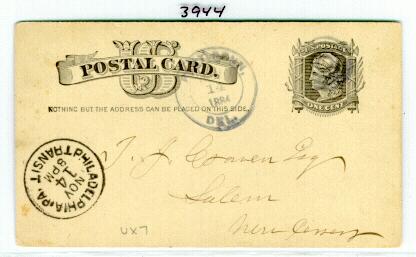 3944
US
POSTAL CARD.
U.S. POSTAGE
ONE CENT
14
188
DEL.
NOTHING BUT THE ADDRESS CAN BE PLACED ON THIS SIDE.
PHILADELPHIA, PA. TRANSIT
NOV
14
8 PM
T. J. Esq
Salem
New Jersey
UX7